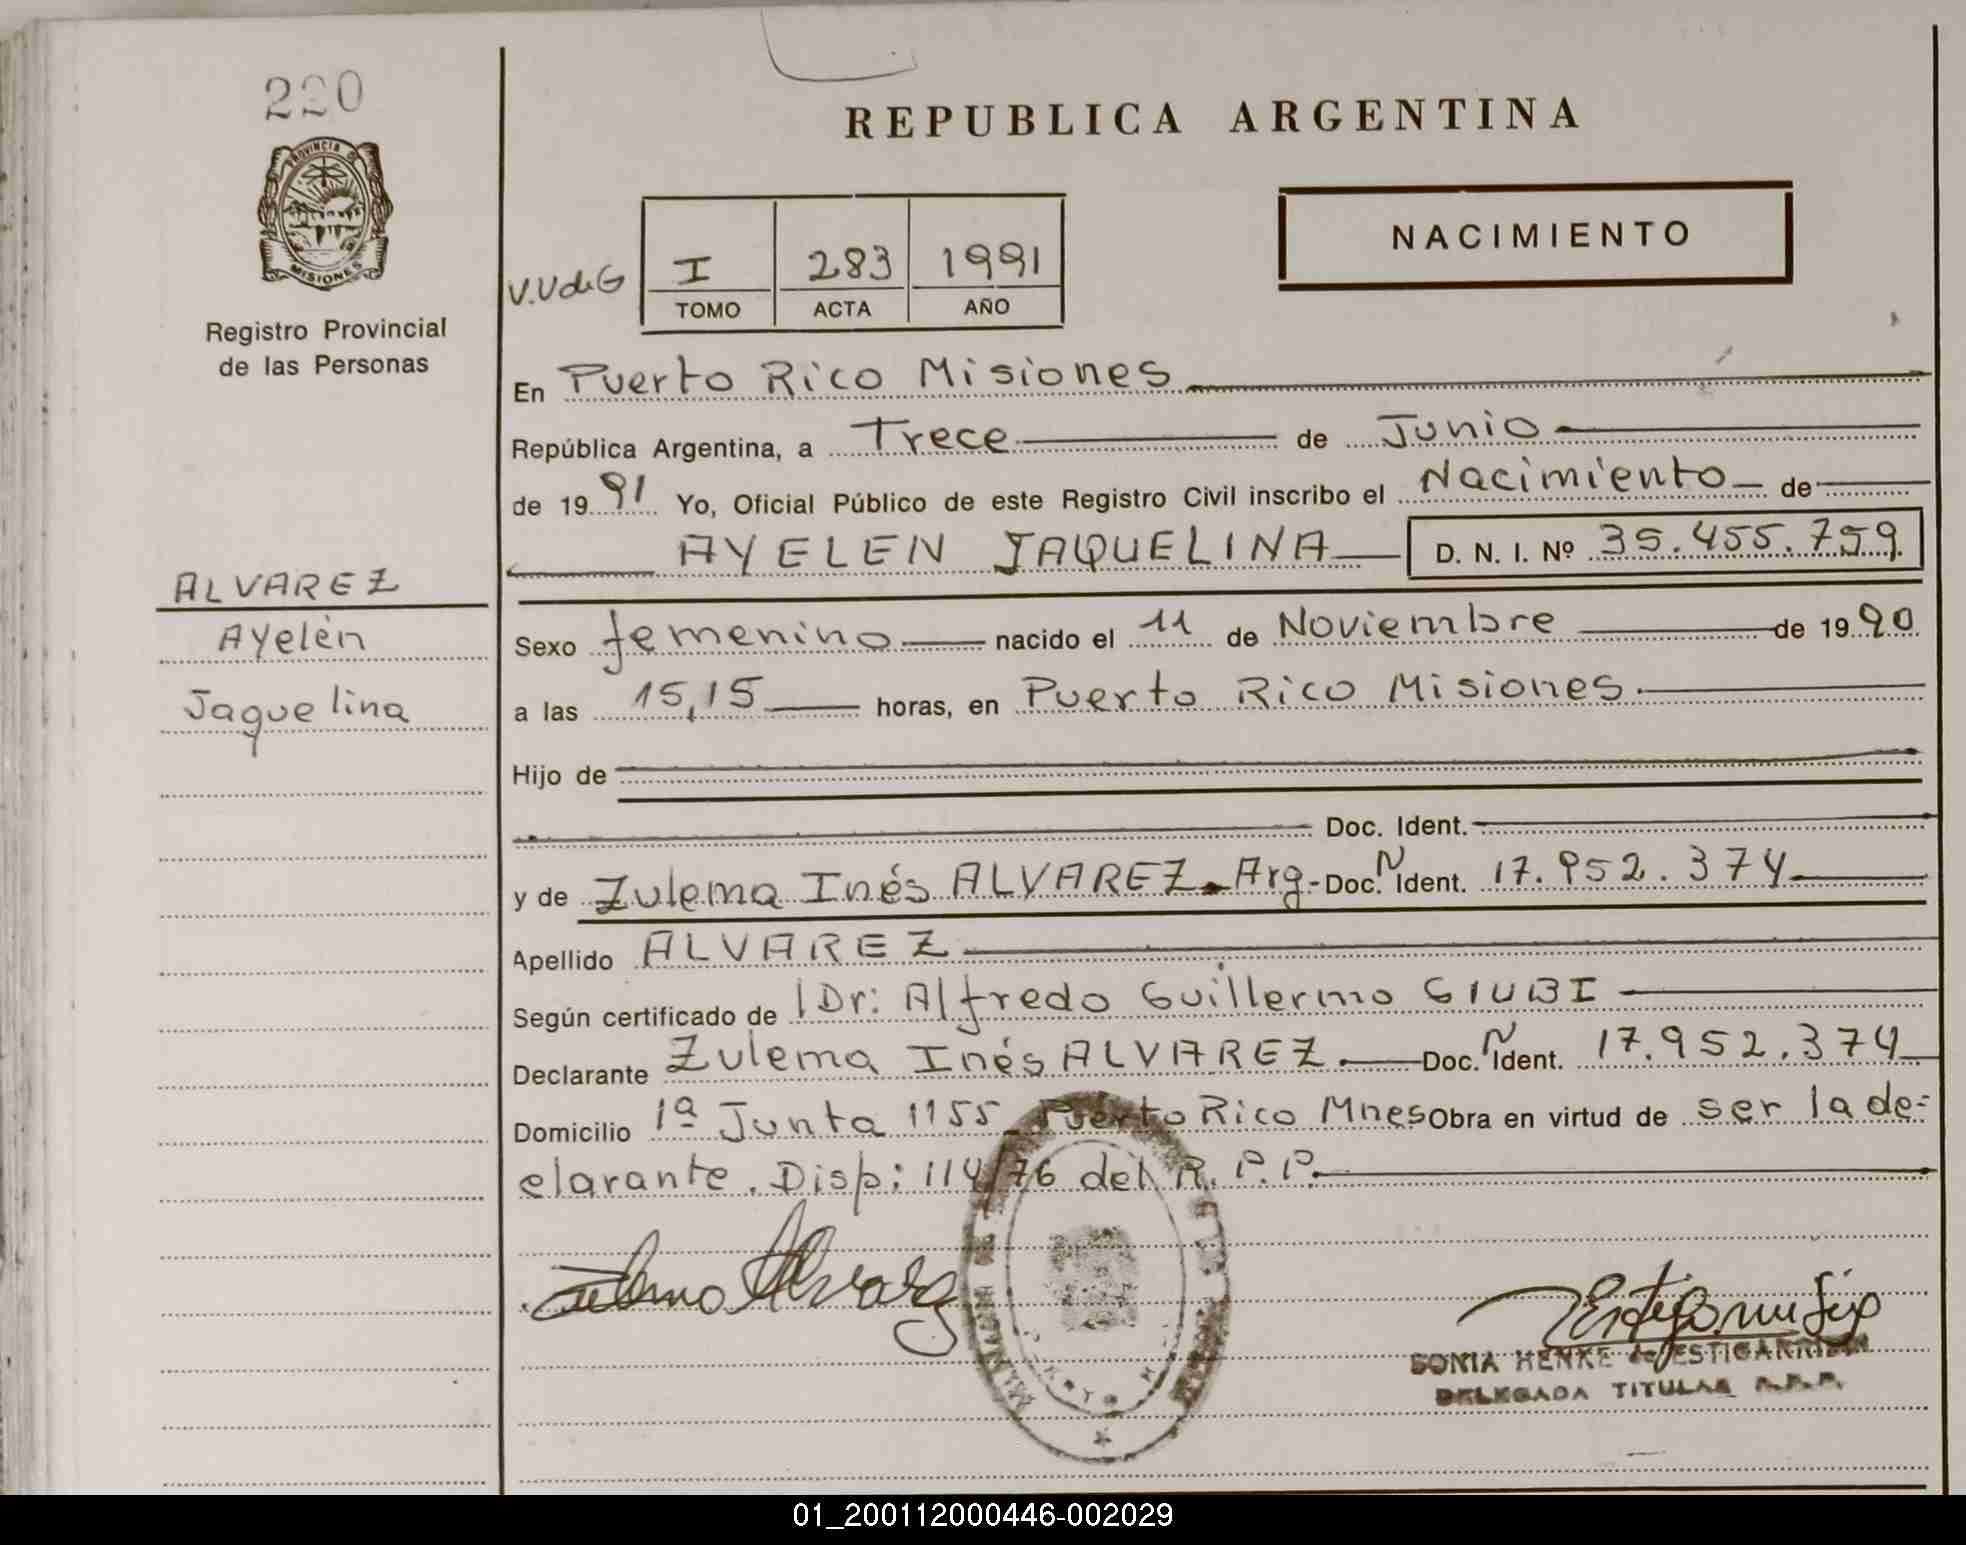 220
REPUBLICA ARGENTINA
PROVINCIA DE
MISIONES
Registro Provincial
de las Personas
V.V de G
I 283 1991
TOMO ACTA AÑO
NACIMIENTO
En Puerto Rico Misiones
República Argentina, a Trece de Junio
de 1991 Yo, Oficial Público de este Registro Civil inscribo el Nacimiento de
AYELEN JAQUELINA D. N. I. Nº 35.455.759
ALVAREZ
Ayelén
Jaquelina
Sexo femenino nacido el 11 de Noviembre de 1990
a las 15,15 horas, en Puerto Rico Misiones
Hijo de
Doc. Ident.
y de Zulema Inés ALVAREZ. Arg- Doc. N Ident. 17.952.374
Apellido ALVAREZ
Según certificado de Dr: Alfredo Guillermo GIUBI
Declarante Zulema Inés ALVAREZ. Doc. N Ident. 17.952.374
Domicilio 1ª Junta 1155 Puerto Rico Mnes Obra en virtud de ser la de=
clarante. Disp: 114/76 del R.P.P.
Zulema Alvarez
SONIA HENKE de ESTIGARRIBIA
DELEGADA TITULAR R.P.P.
01_200112000446-002029